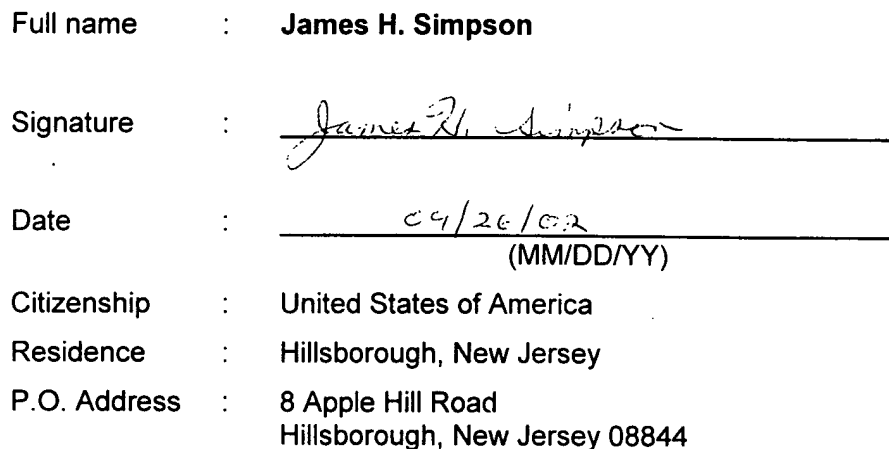 Full name : James H. Simpson
Signature : James H. Simpson
Date : 09/26/02
(MM/DD/YY)
Citizenship : United States of America
Residence : Hillsborough, New Jersey
P.O. Address : 8 Apple Hill Road
Hillsborough, New Jersey 08844